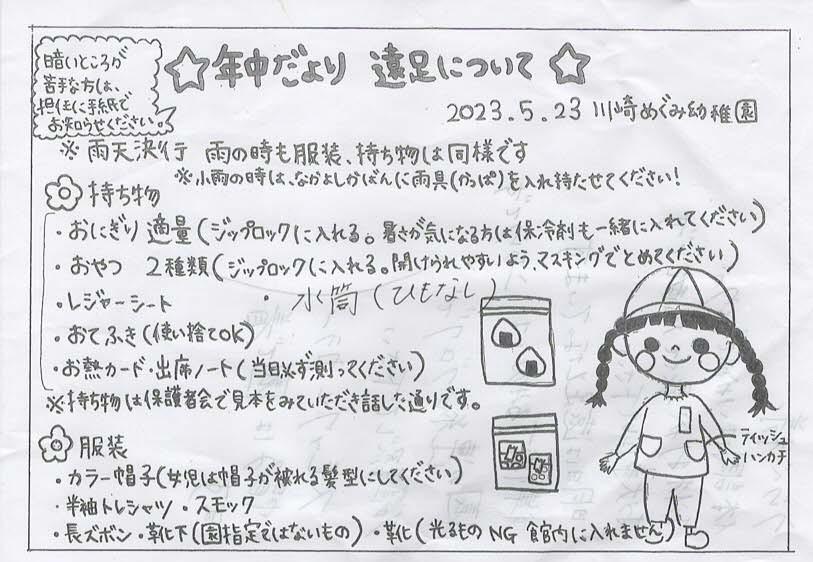 暗いところが
苦手な方は、
担任に手紙で
お知らせください。
☆年中だより 遠足について☆
2023.5.23 川崎めぐみ幼稚園
※雨天決行 雨の時も服装、持ち物は同様です
※小雨の時は、なかよしかばんに雨具(かっぱ)を入れ持たせてください!
持ち物
・おにぎり 適量(ジップロックに入れる。暑さが気になる方は保冷剤も一緒に入れてください)
・おやつ 2種類(ジップロックに入れる。開けられやすいよう、マスキングでとめてください)
・レジャーシート ・水筒(ひもなし)
・おてふき(使い捨てOK)
・お熱カード・出席ノート(当日必ず測ってください)
※持ち物は保護者会で見本をみていただき話した通りです。
服装
・カラー帽子(女児は帽子が被れる髪型にしてください)
・半袖トレシャツ・スモック
・長ズボン・靴下(園指定ではないもの)・靴(光るものNG 館内に入れません)
ティッシュ
ハンカチ